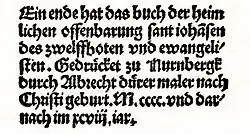 Ein ende hat das buch der heim
lichen offenbarung sant iohañsen
des zwelffboten vnd ewangeli-
sten. Gedrücket zu Nurnbergk
durch Albrecht dürer maler nach
Christi geburt. M. cccc. vnd dar-
nach im xcviij. iar.